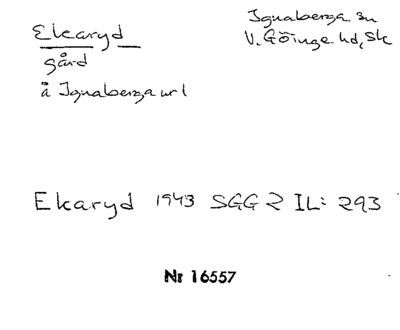 Ekaryd
gård
å Ignaberga nr 1
Ignaberga sn
V. Göinge hd, Sk
Ekaryd 1943 SGG 2 IL: 293
Nr 16557